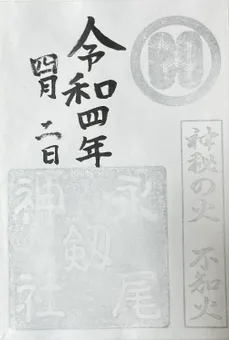 神秘の火 不知火
令和四年
四月二日
永尾
剱
神社